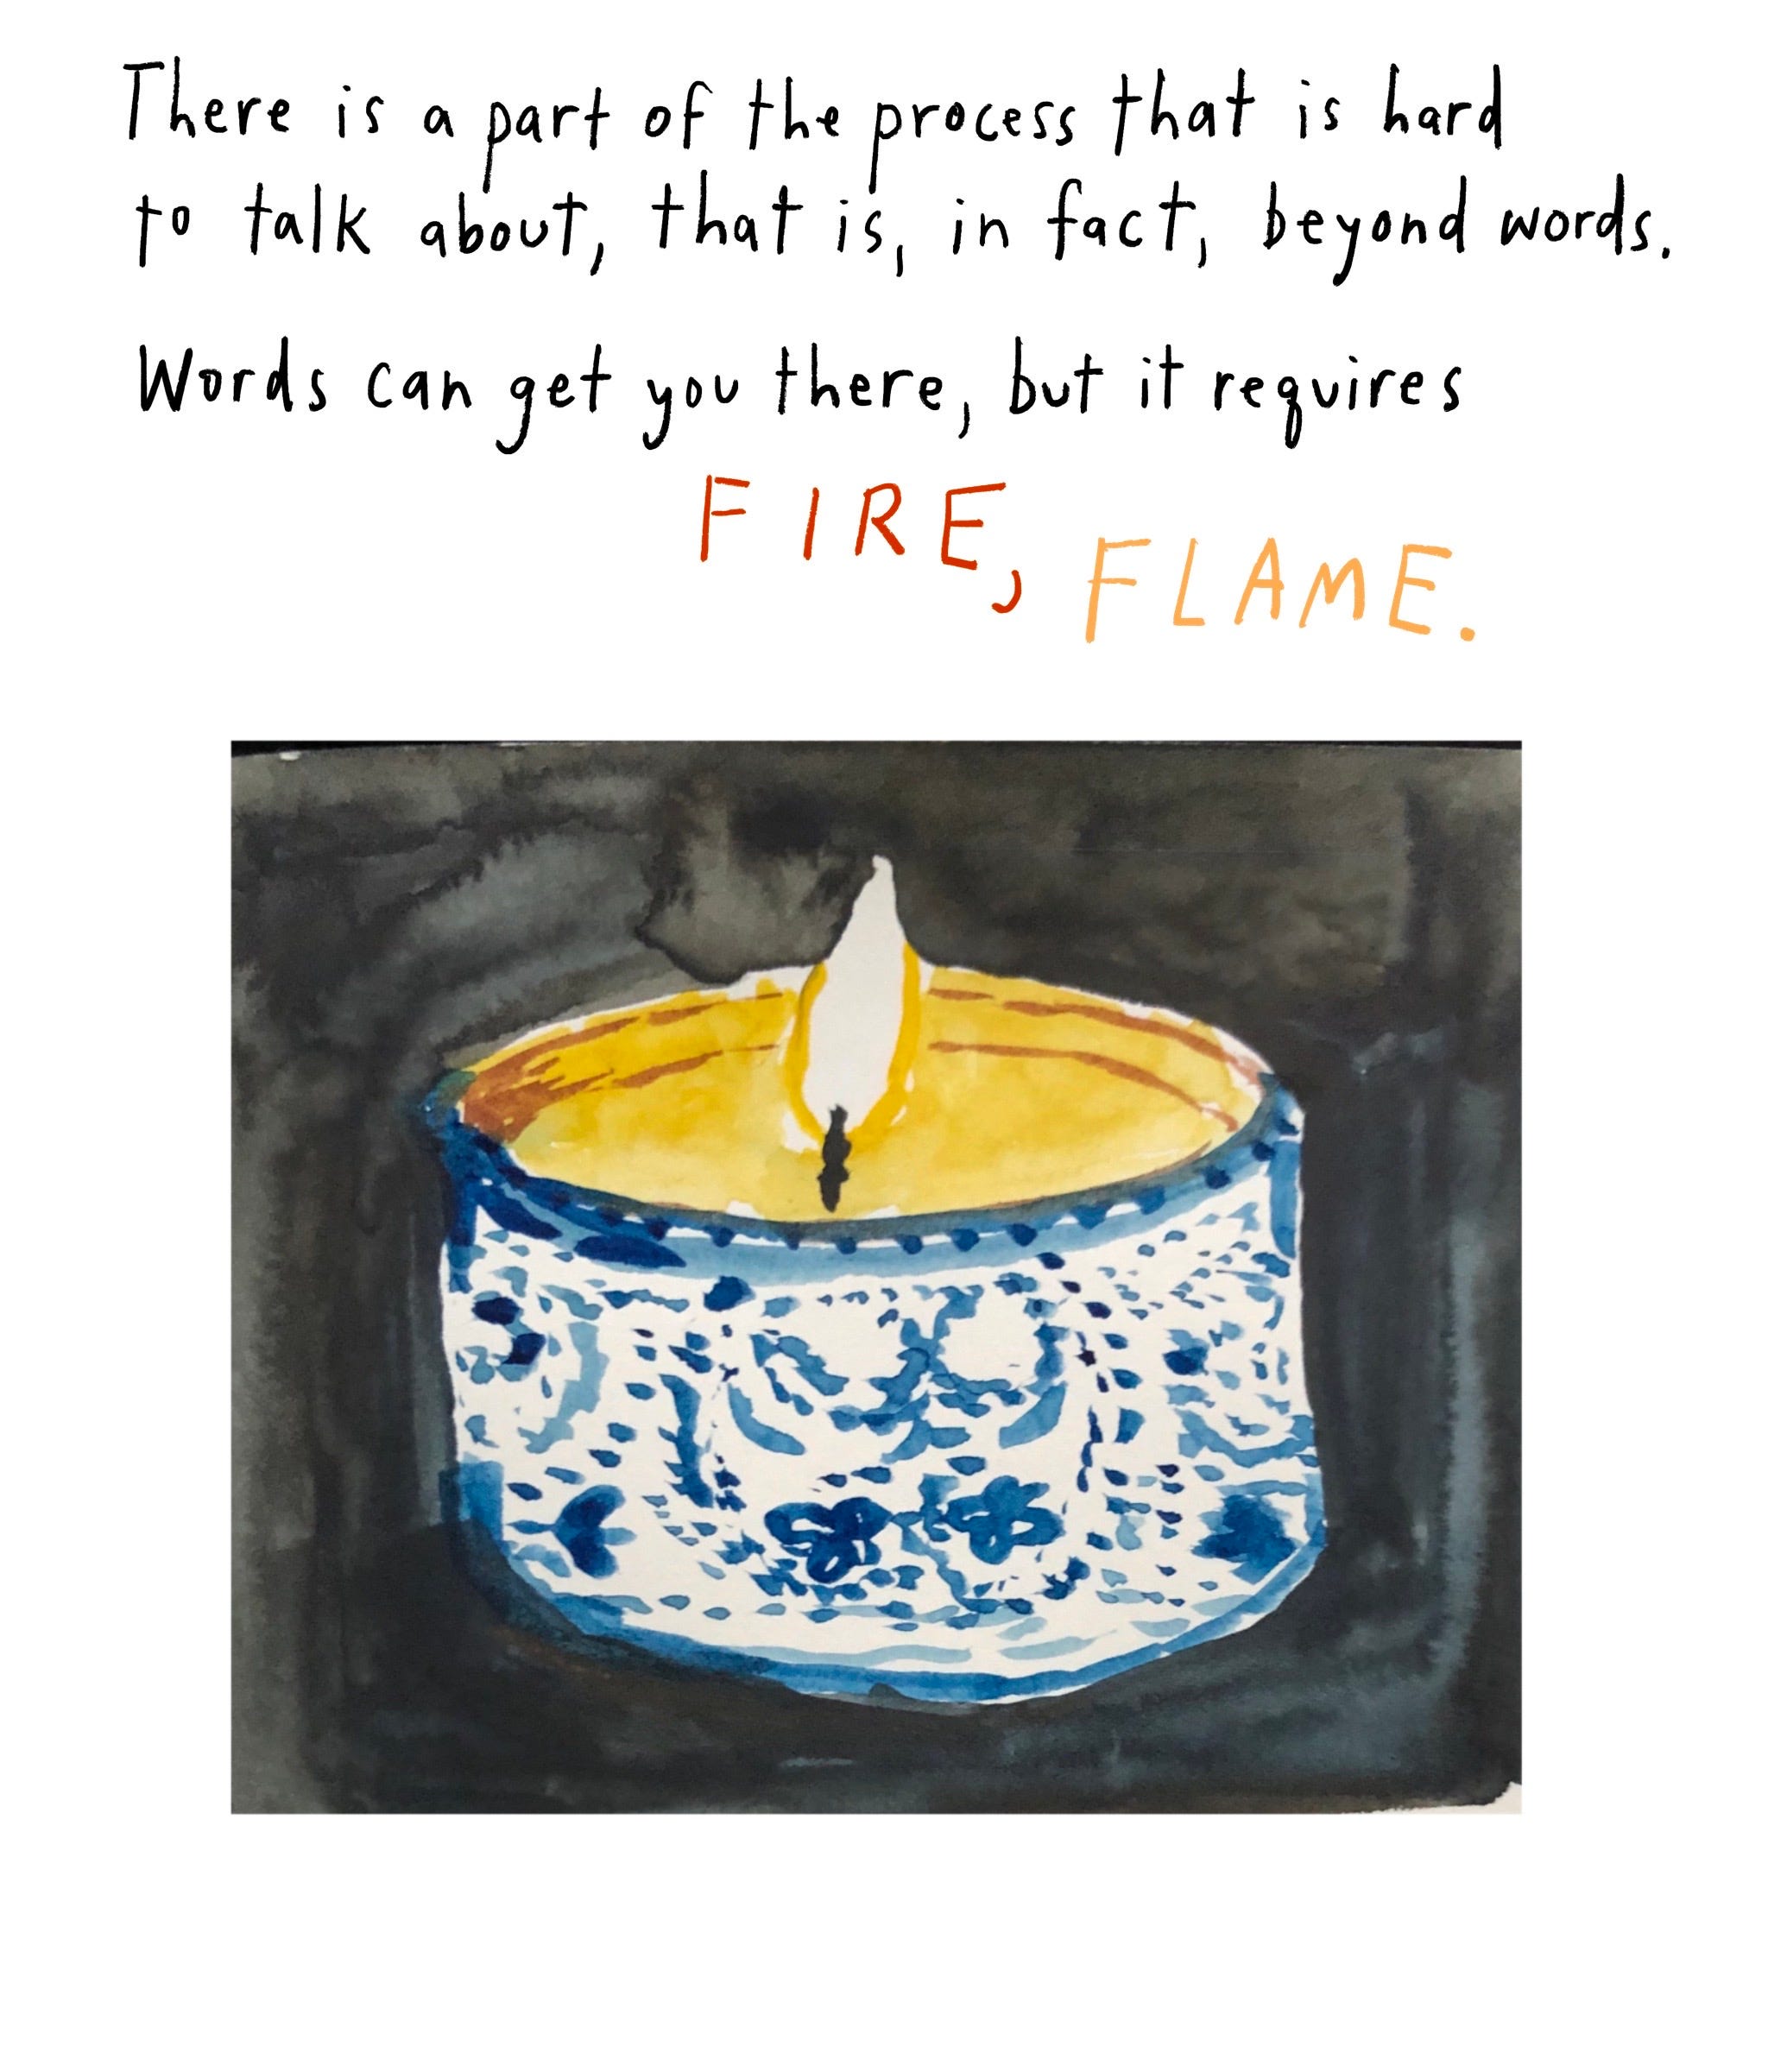 There is a part of the process that is hard
to talk about, that is, in fact, beyond words.
Words can get you there, but it requires
FIRE, FLAME.